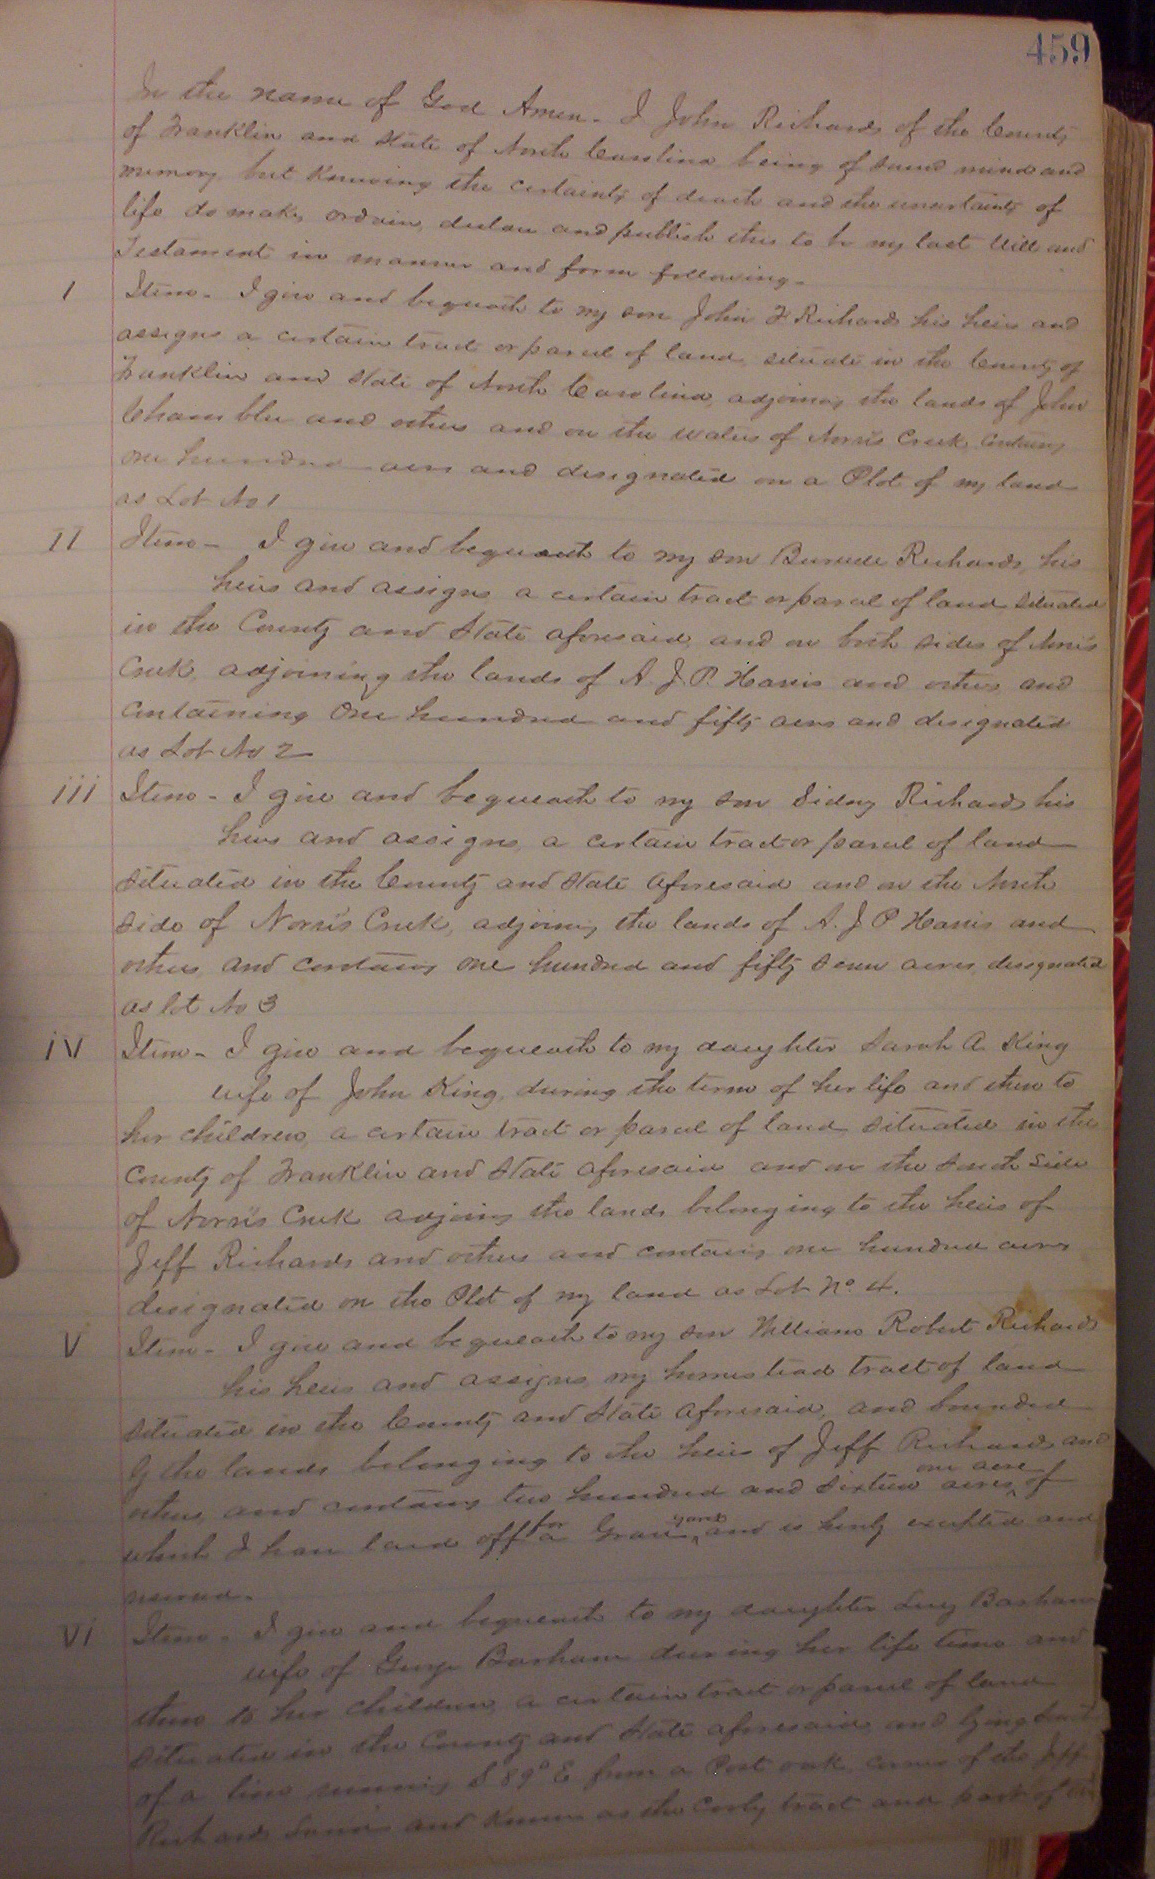 459
In the name of God Amen. I John Richards of the County
of Franklin and State of North Carolina being of sound mind and
memory, but Knowing the certainty of death and the uncertainty of
life do make, ordain, declare and publish this to be my last Will and
Testament in manner and form following.
1 Item. I give and bequeath to my son John F Richards his heirs and
assigns a certain tract or parcel of land, situate in the County of
Franklin and State of North Carolina, adjoining the lands of John
Chamblee and others and on the waters of Norris Creek, containg
one hundred acres and designated on a Plot of my land
as Lot No 1
II Item - I give and bequeath to my son Richards, his
heirs and assigns a certain tract or parcel of land situated
in the County and State aforesaid, and on both sides of Norris
Creek, adjoining the lands of A. J. P. Harris and others, and
containing One hundred and fifty acres and designated
as Lot No 2
iii Item - I give and bequeath to my son Sidney Richards his
heirs and assigns, a certain tract or parcel of land
situated in the County and State aforesaid and on the North
side of Norris Creek, adjoining the lands of A. J. P Harris and
others, and containing one hundred and fifty seven acres, designated
as lot No 3
iv Item - I give and bequeath to my daughter Sarah A. King
wife of John King, during the term of her life and then to
her children, a certain tract or parcel of land situated in the
County of Franklin and State aforesaid and on the South Side
of Norris Creek adjoing the lands belonging to the heirs of
Jeff Richards and others and containg one hundred acres
designated on the Plot of my land as Lot No. 4.
V Item - I give and bequeath to my son William Robert Richards
his heirs and assigns, my homestead tract of land
situated in the County and State aforesaid, and bounded
by the lands belonging to the heirs of Jeff Richards and
others, and containg two hundred and sixteen acres, one acre of
which I have laid off for a Grave yard, and is hereby excepted and
reserved.
Vi Item. I give and bequeath to my daughter Lucy Barham
wife of George Barham during her life time and
then to her children, a certain tract or parcel of land
situated in the County and State aforesaid and lying South
of a line running S 89° E from a Post oak, corner of the Jeff
Richards Lands and Known as the tract and part of the